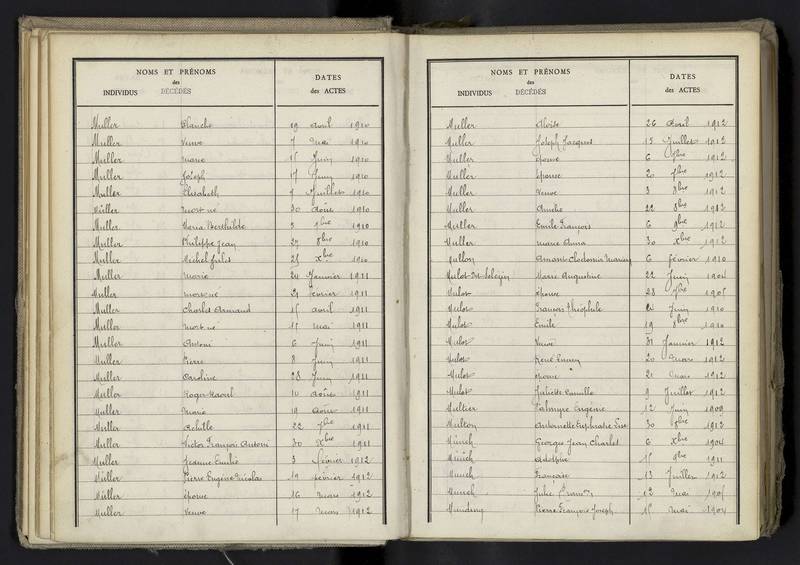 NOMS ET PRÉNOMS
des
INDIVIDUS DÉCÉDÉS
DATES
des ACTES
Muller Blanche 19 avril 1910
Muller Veuve 7 mai 1910
Muller Marie 15 Juin 1910
Muller Joseph 17 Juin 1910
Muller Elisabeth 9 Juillet 1910
Muller mort né 30 Août 1910
Muller Maria Berthilde 1910
Muller Philippe Jean 27 8bre 1910
Muller Michel Jules 25 Xbre 1910
Muller Marie 24 Janvier 1911
Muller mort né 21 février 1911
Muller Charles Armand 15 avril 1911
Muller mort né 15 mai 1911
Muller Antoni 6 Juin 1911
Muller Pierre 8 Juin 1911
Muller Caroline 28 Juin 1911
Muller Roger Raoul 10 Août 1911
Muller Marie 19 Août 1911
Muller Achille 22 7bre 1911
Muller Victor François Antoni 30 Xbre 1911
Muller Jeanne Emilie 3 février 1912
Muller Pierre Eugène Nicolas 19 février 1912
Muller épouse 16 mars 1912
Muller Veuve 17 mars 1912
NOMS ET PRÉNOMS
des
INDIVIDUS DÉCÉDÉS
DATES
des ACTES
Muller Aloïse 26 Avril 1912
Muller Joseph Jacques 15 Juillet 1912
Muller épouse 6 7bre 1912
Muller épouse 20 7bre 1912
Muller Veuve 3 8bre 1912
Muller Amelie 22 8bre 1912
Muller Emile François 6 9bre 1912
Muller Marie Anna 30 Xbre 1912
Mullon Amant Clodomir 6 février 1910
Mulot Marie Augustine 22 Juin 1904
Mulot épouse 28 7bre 1905
Mulot François Théophile Juin 1910
Mulot Emile 19 8bre 1910
Mulot Veuve 31 Janvier 1912
Mulot René 20 mars 1912
Mulot épouse 21 mars 1912
Mulot Juliette Camille 9 Juillet 1912
Multier Palmyre Eugénie 12 Juin 1909
Multon Antoinette 30 8bre 1912
Münch Georges Jean Charles 6 Xbre 1904
Münch Adolphe 15 9bre 1911
Munch Françoise 13 Juillet 1912
Munch Julie 12 mai 1905
Mundiny Pierre François Joseph 15 mai 1904